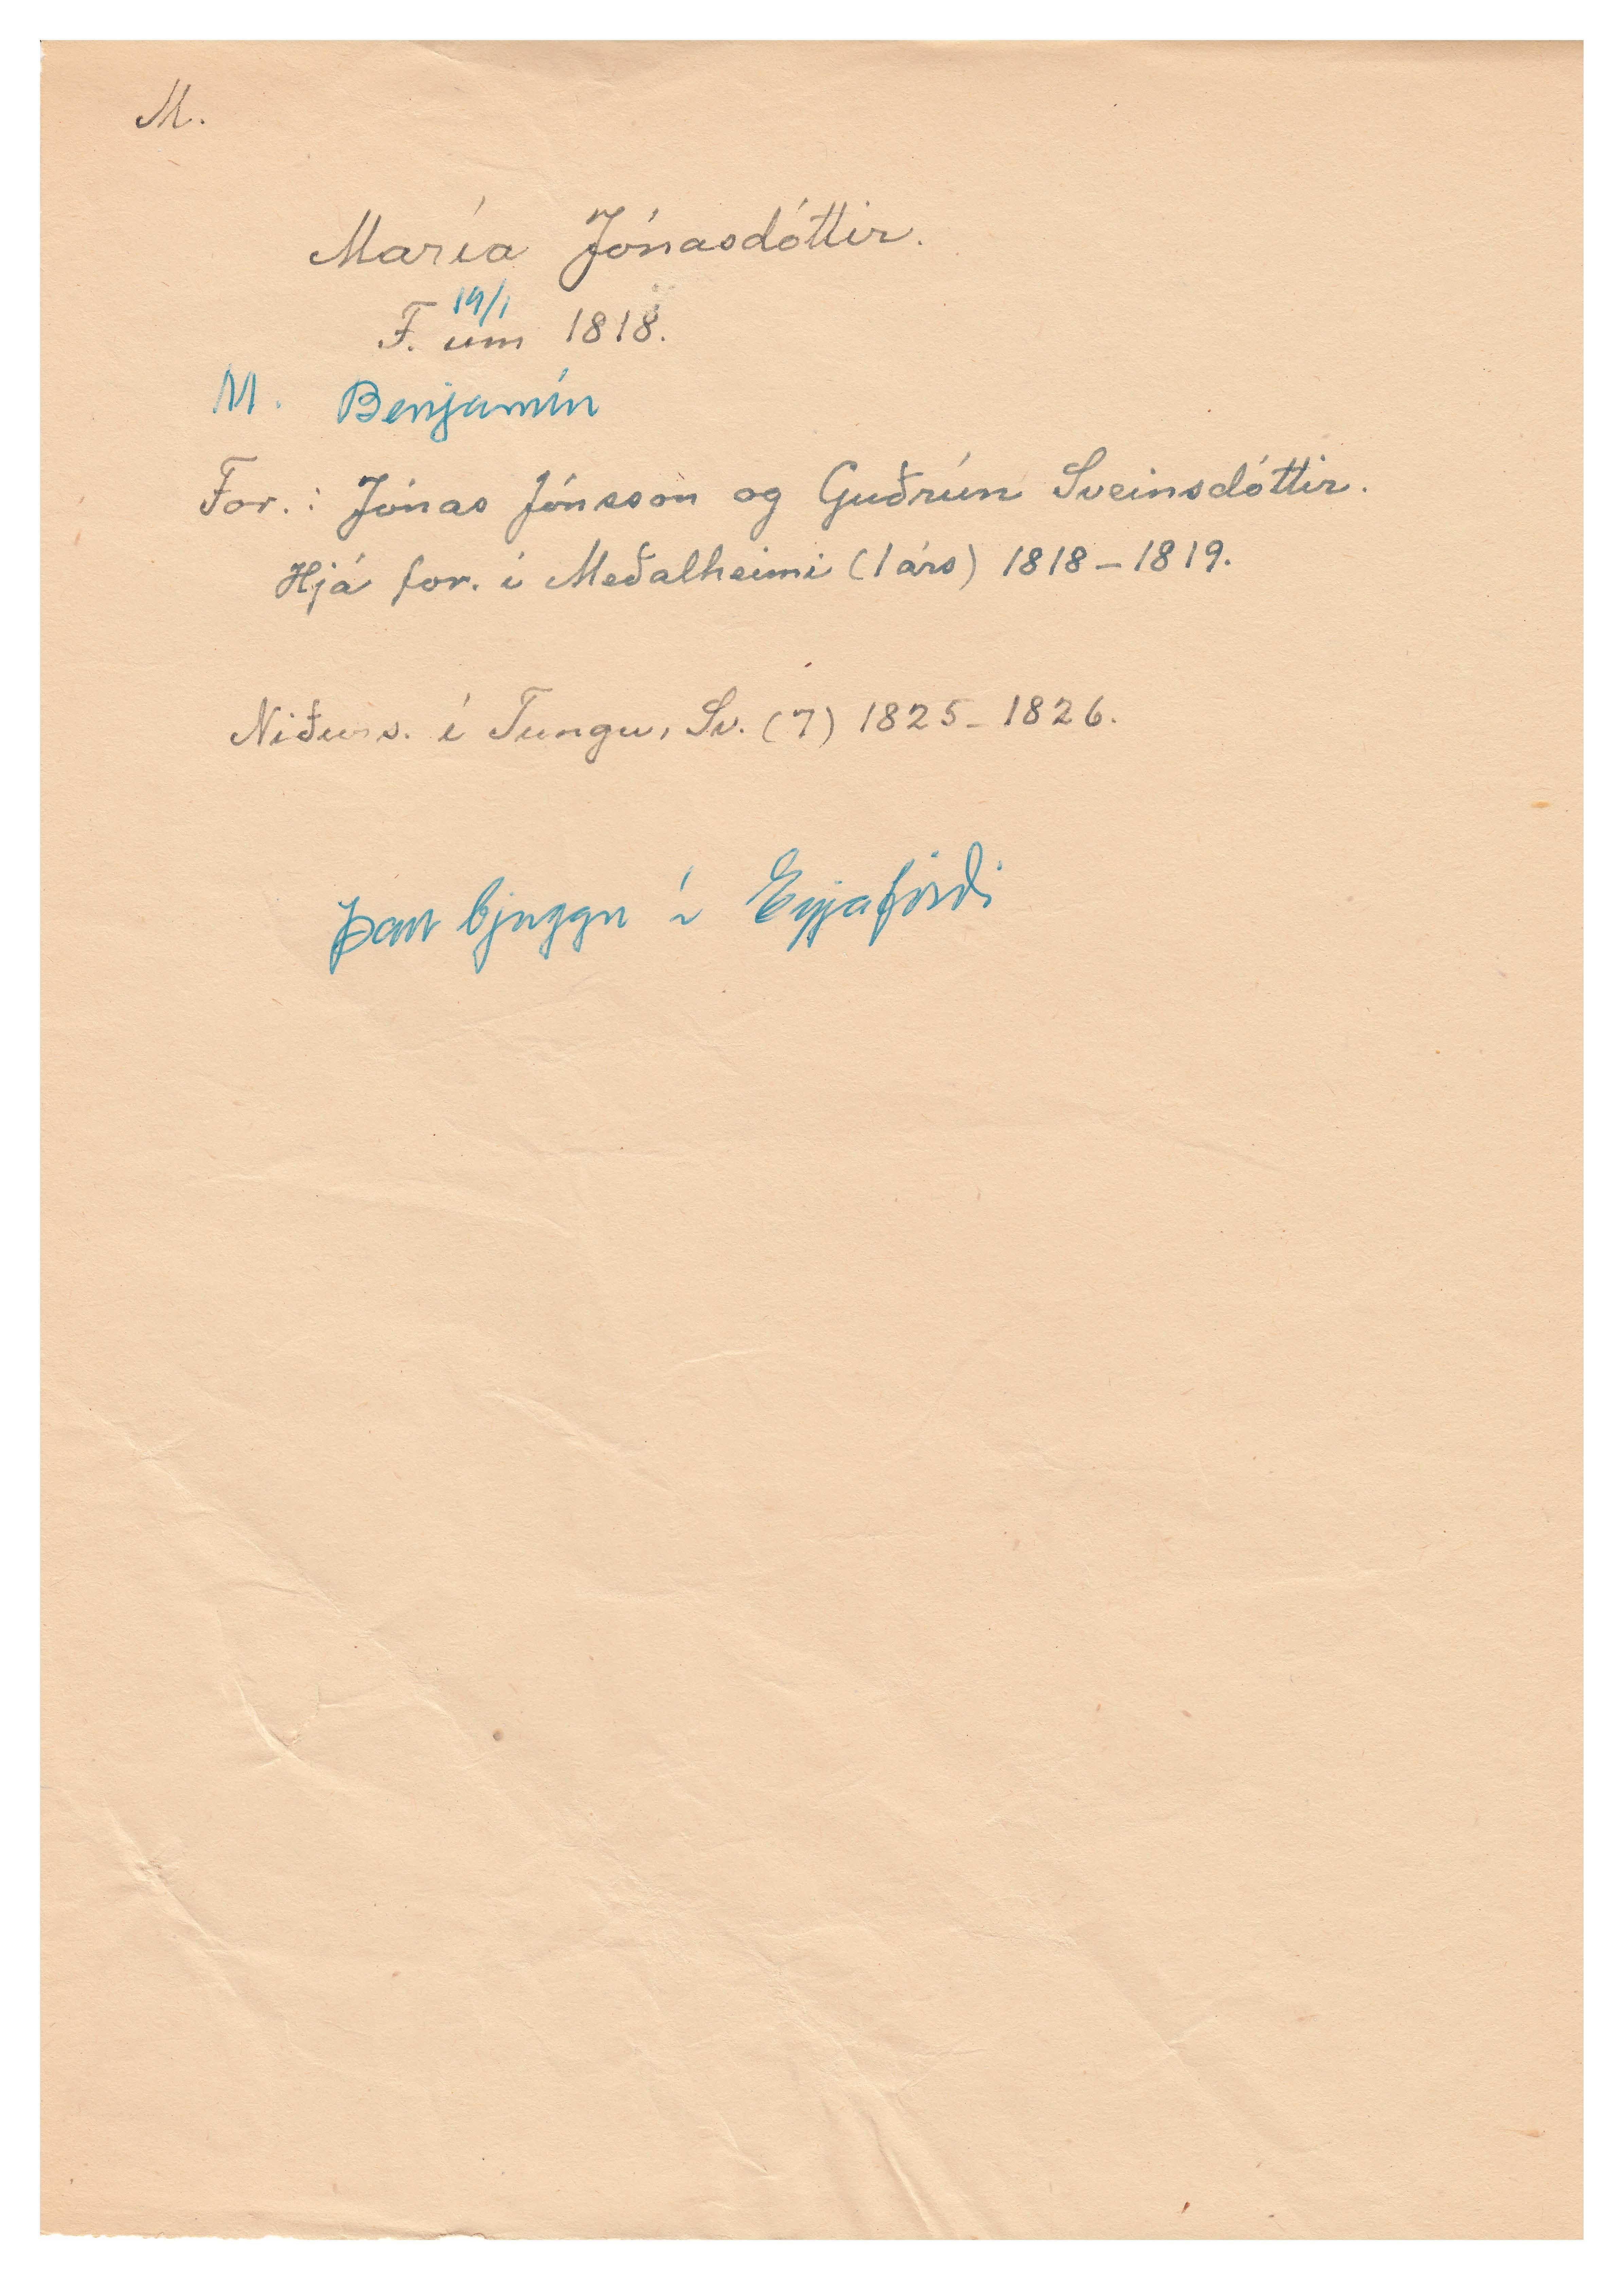 M.
María Jónasdóttir.
19/1
F. um 1818.
M. Benjamín
For.: Jónas Jónsson og Guðrún Sveinsdóttir.
Hjá for. í Meðalheimi (1 árs) 1818-1819.
Niðurs. í Tungu, Sv. (7) 1825-1826.
Þau bjuggu í Eyjafirði